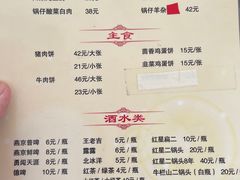 锅仔酸菜白肉 38元 锅仔羊杂 42元
主食
猪肉饼 42元/大张 茴香鸡蛋饼 15元/张
21元/小张 韭菜鸡蛋饼 15元/张
牛肉饼 46元/大张
23元/小张
酒水类
燕京普啤 6元/瓶 王老吉 5元/瓶 红星扁二 10元/瓶
燕京鲜啤 8元/瓶 露露 6元/瓶 红星二锅头 20元/瓶
勇闯天涯 8元/瓶 北冰洋 5元/瓶 红星二锅头8年 40元/瓶
红茶/绿茶 4元/瓶 牛栏山二锅头（白瓶）10元/瓶